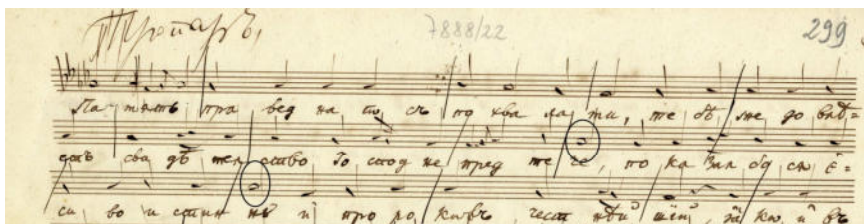 Тропаръ,
7888/22
299
Па-мять пра вед на го съ по хва ла ми, те бѣ же до влѣ=
етъ сви дѣ тел ство Го спод не пред те че, по ка зал бо ся е=
си во и стин нꙋ и про ро ковъ чест нѣй шій, ꙗ ко и въ